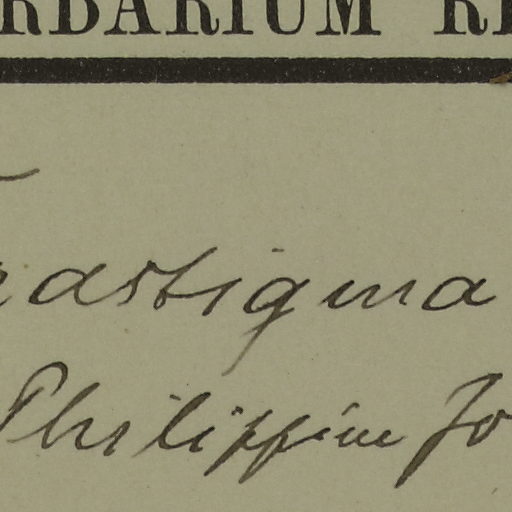 RBARIUM RE
rastigma
Philippine Jo